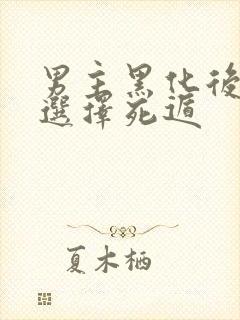 男主黑化後
選擇死遁
夏木栖